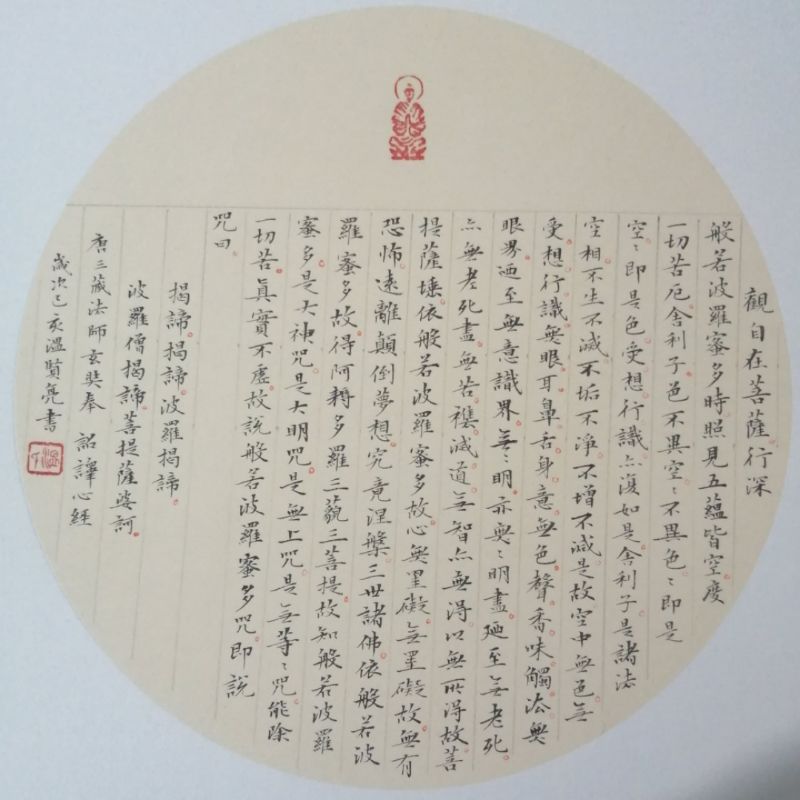 觀自在菩薩行深
般若波羅蜜多時照見五蘊皆空度
一切苦厄舍利子色不異空〻不異色〻即是
空〻即是色受想行識亦復如是舍利子是諸法
空相不生不滅不垢不淨不增不減是故空中無色無
受想行識無眼耳鼻舌身意無色聲香味觸法無
眼界廼至無意識界無〻明亦無〻明盡廼至無老死
亦無老死盡無苦集滅道無智亦無得以無所得故菩
提薩埵依般若波羅蜜多故心無罣礙無罣礙故無有
恐怖遠離顛倒夢想究竟涅槃三世諸佛依般若波
羅蜜多故得阿耨多羅三藐三菩提故知般若波羅
蜜多是大神咒是大明咒是無上咒是無等〻咒能除
一切苦真實不虛故說般若波羅蜜多咒即說
咒曰
揭諦揭諦波羅揭諦
波羅僧揭諦菩提薩婆訶
唐三藏法師玄奘奉 詔譯心經
歲次己亥溫賢亮書